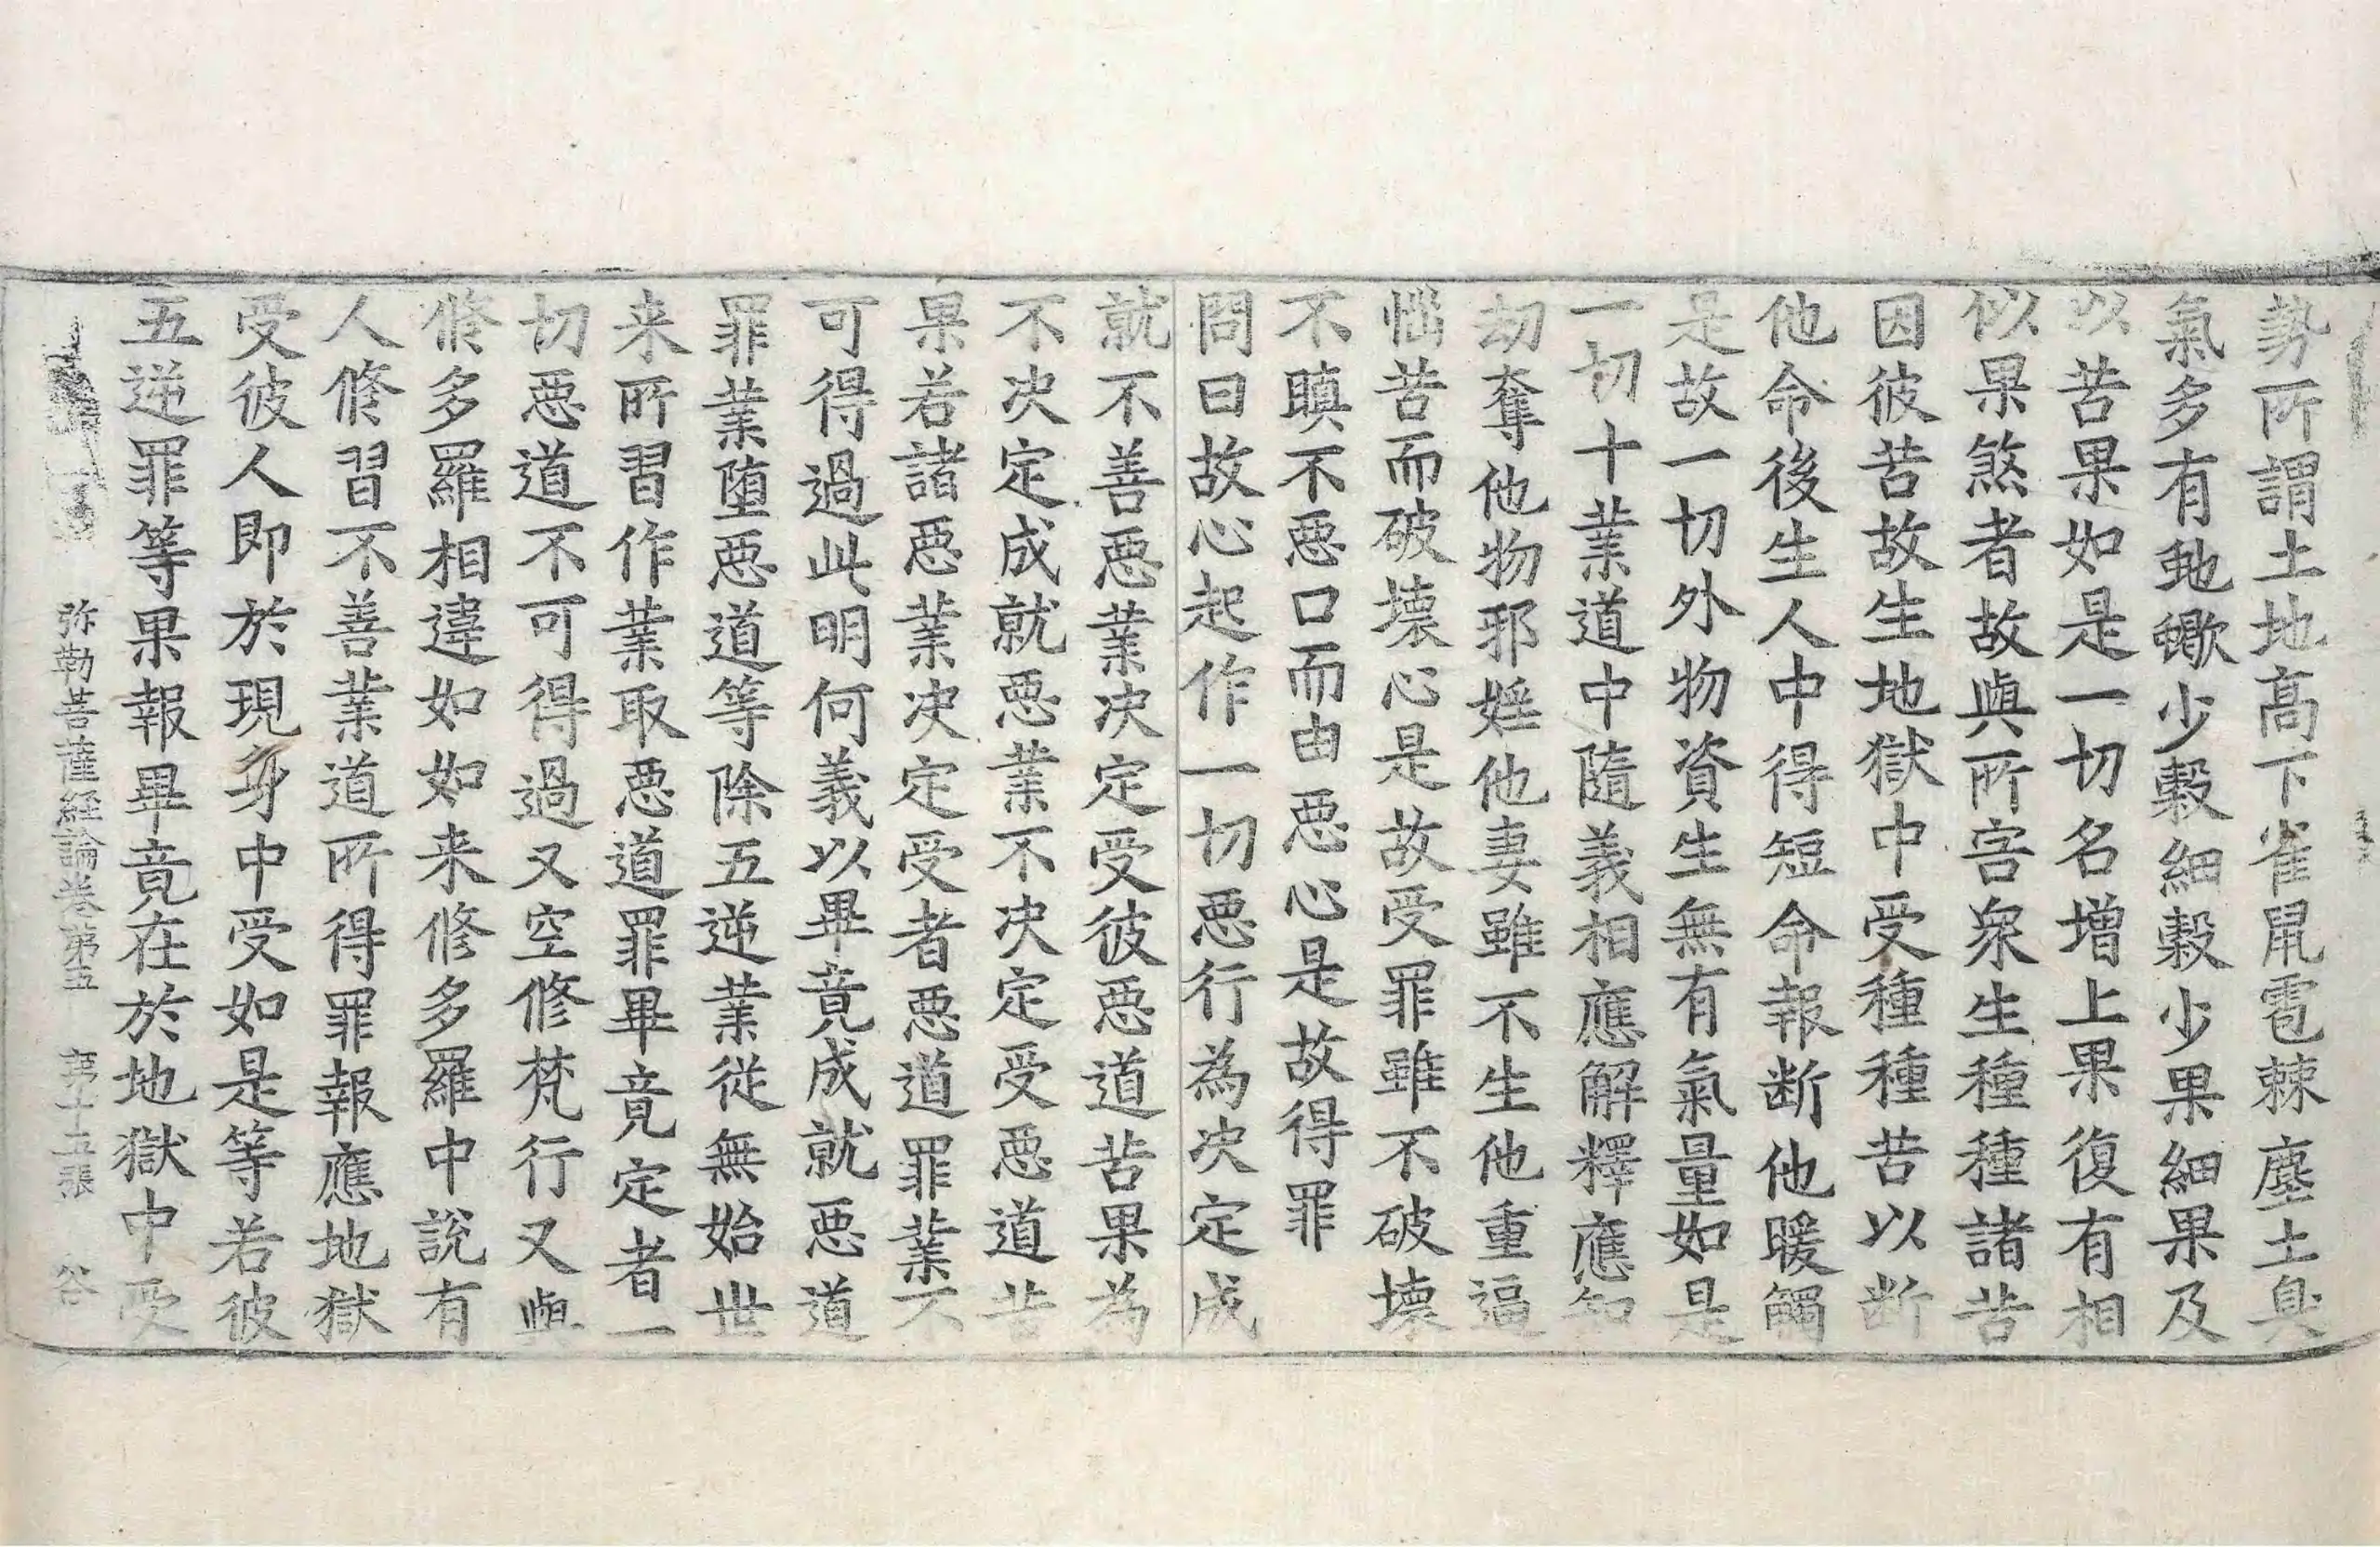 勢所謂土地高下雀鼠雹棘塵土臭
氣多有虵蠍少穀細穀少果細果及
以苦果如是一切名增上果復有相
似果煞者故與所害衆生種種諸苦
因彼苦故生地獄中受種種苦以断
他命後生人中得短命報断他暖觸
是故一切外物資生無有氣量如是
一切十業道中隨義相應解釋應知
劫奪他物邪婬他妻雖不生他重逼
惱苦而破壞心是故受罪雖不破壞
不瞋不惡口而由惡心是故得罪
問曰故心起作一切惡行為決定成
就不善惡業決定受彼惡道苦果為
不决定成就惡業不决定受惡道苦
果若諸惡業决定受者惡道罪業不
可得過此明何義以畢竟成就惡道
罪業墮惡道等除五逆業從無始世
来所習作業取惡道罪畢竟定者一
切惡道不可得過又空修梵行又與
修多羅相違如如来修多羅中說有
人修習不善業道所得罪報應地獄
受彼人即於現身中受如是等若彼
五逆罪等果報畢竟在於地獄中受
弥勒菩薩經論卷第五 第十五張 谷